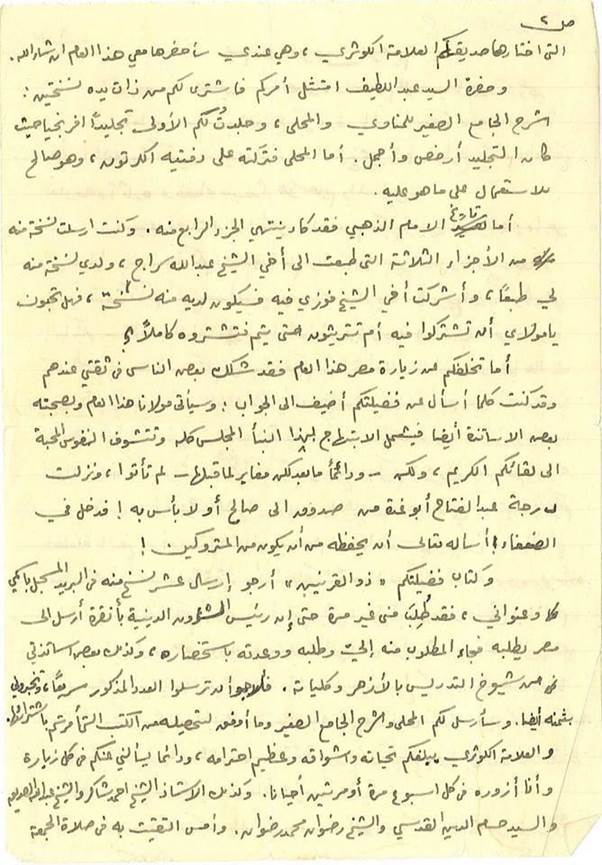 ص ٢
التي اختارها صديقكم العلامة الكوثري، وهي عندي سأحضرها معي هذا العام ان شاء الله.
وحضرة السيد عبد اللطيف امتثل أمركم فاشترى لكم من ذات يده نسختين:
شرح الجامع الصغير للمناوي والمحلى، وجلدتُ لكم الأولى تجليداً افرنجيا حيث
كان التجليد أرخص وأجمل. أما المحلى فتركته على دفتيه الكرتون، وهو صالح
للاستعمال على ما هو عليه.
أما تاريخ الامام الذهبي فقد كاد ينتهي الجزء الرابع منه. وكنت ارسلت نسخة منه
من الأجزاء الثلاثة التي طبعت الى أخي الشيخ عبد الله سراج، ولدي نسخة منه
لي طبعاً، وأشركت أخي الشيخ فوزي فيه فسيكون لديه منه نسخة، فهل تحبون
يا مولاي أن تشتركوا فيه أم تتريثون حتى يتم فتشتروه كاملاً؟
أما تخلفكم عن زيارة مصر هذا العام فقد شكك بعض الناس في ثقتي عندهم
وقد كنت كلما أسأل عن فضيلتكم أضيف الى الجواب: وسيأتي مولانا هذا العام وبصحبته
بعض الاساتذة أيضا فيشمل الابتهاج بهذا النبأ المجلس كله وتتشوف النفوس المحبة
الى لقائكم الكريم، ولكن - ودائماً ما بعد لكن مغاير لما قبلها - لم تأتوا، ونزلت
درجة عبد الفتاح أبو غدة من صدوق الى صالح أو لا بأس به! فدخل في
الضعفاء! أسأله تعالى أن يحفظه من أن يكون من المتروكين!
وكتاب فضيلتكم «ذو القرنين» أرجو إرسال عشر نسخ منه في البريد المسجل باكي
وعنواني، فقد طُلِبَ مني غير مرة حتى إن رئيس الشئون الدينية بأنقرة أرسل الى
مصر يطلبه فجاء المطلوب منه إليّ وطلبه ووعدته باستحضاره، وكذلك بعض اساتذتي
من شيوخ التدريس بالأزهر وكلياته. فلأرجو أن ترسلوا العدد المذكور سريعًا، وتخبروني
بثمنه أيضا. وسأرسل لكم المحلى وشرح الجامع الصغير وما أوفق لتحصيله من الكتب التي أمرتم باشترائها.
والعلامة الكوثري يبلغكم تحياته واشواقه وعظيم احترامه، ودائما يسألني عنكم في كل زيارة
وأنا أزوره في كل اسبوع مرة أو مرتين أحيانا. وكذلك الاستاذ الشيخ احمد شاكر والشيخ
والسيد حسام الدين القدسي والشيخ رضوان محمد رضوان. وأمس التقيت به في صلاة الجمعة